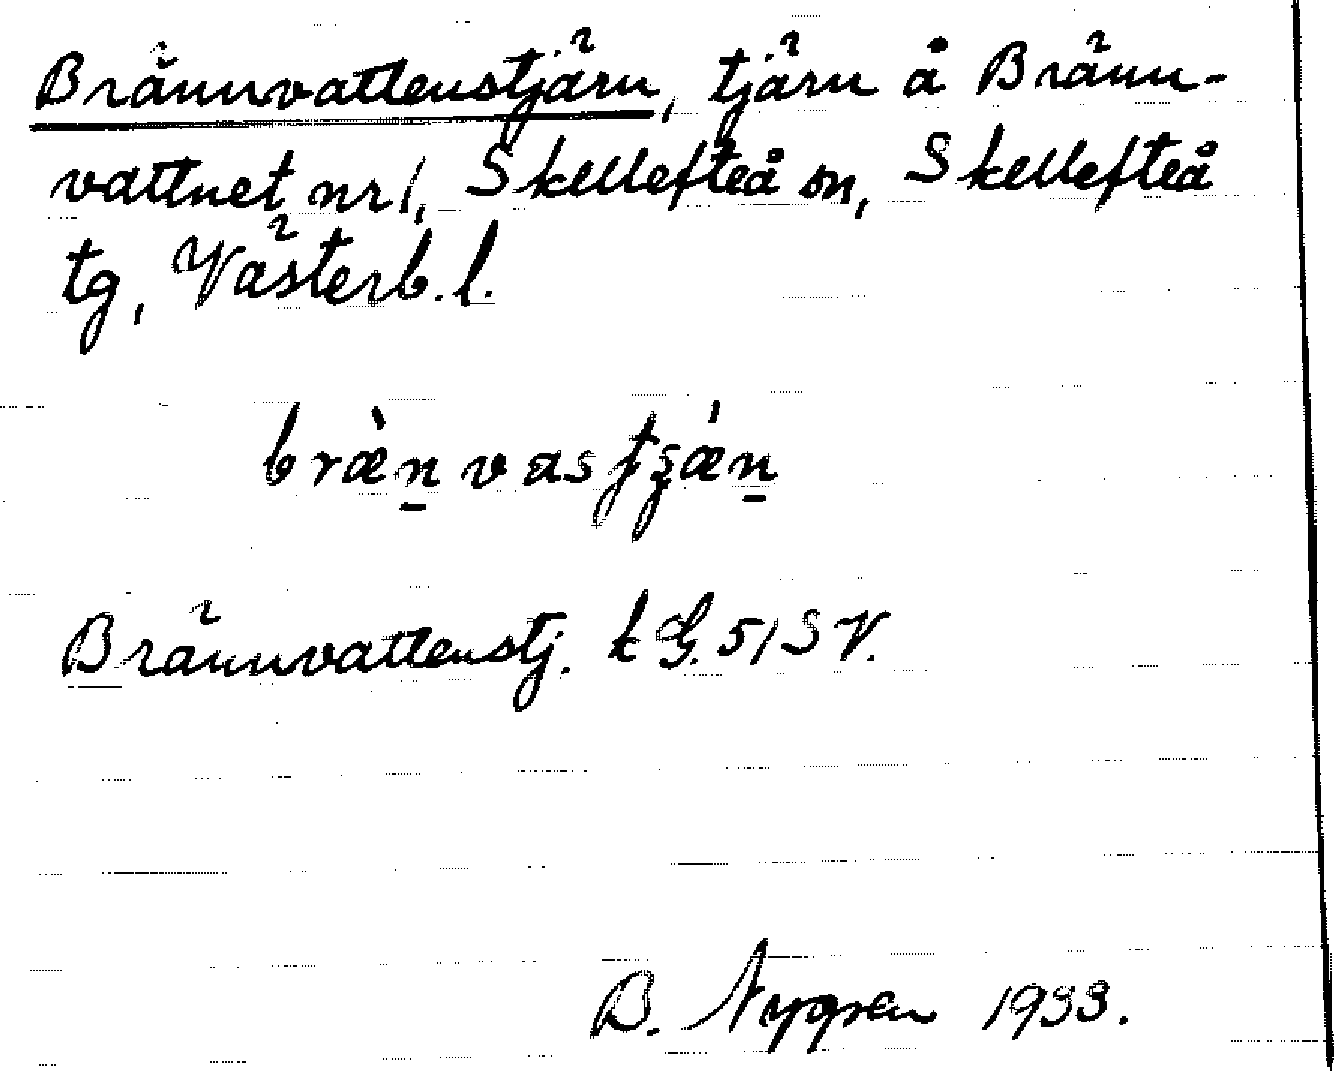 Brännvattenstjärn, tjärn å Bränn-
vattnet nr 1, Skellefteå sn, Skellefteå
tg, Västerb. l.
bræ̀n̲vastʒǽn̲
Brännvattenstj. k G. 51 S V.
B. Nygren 1933.